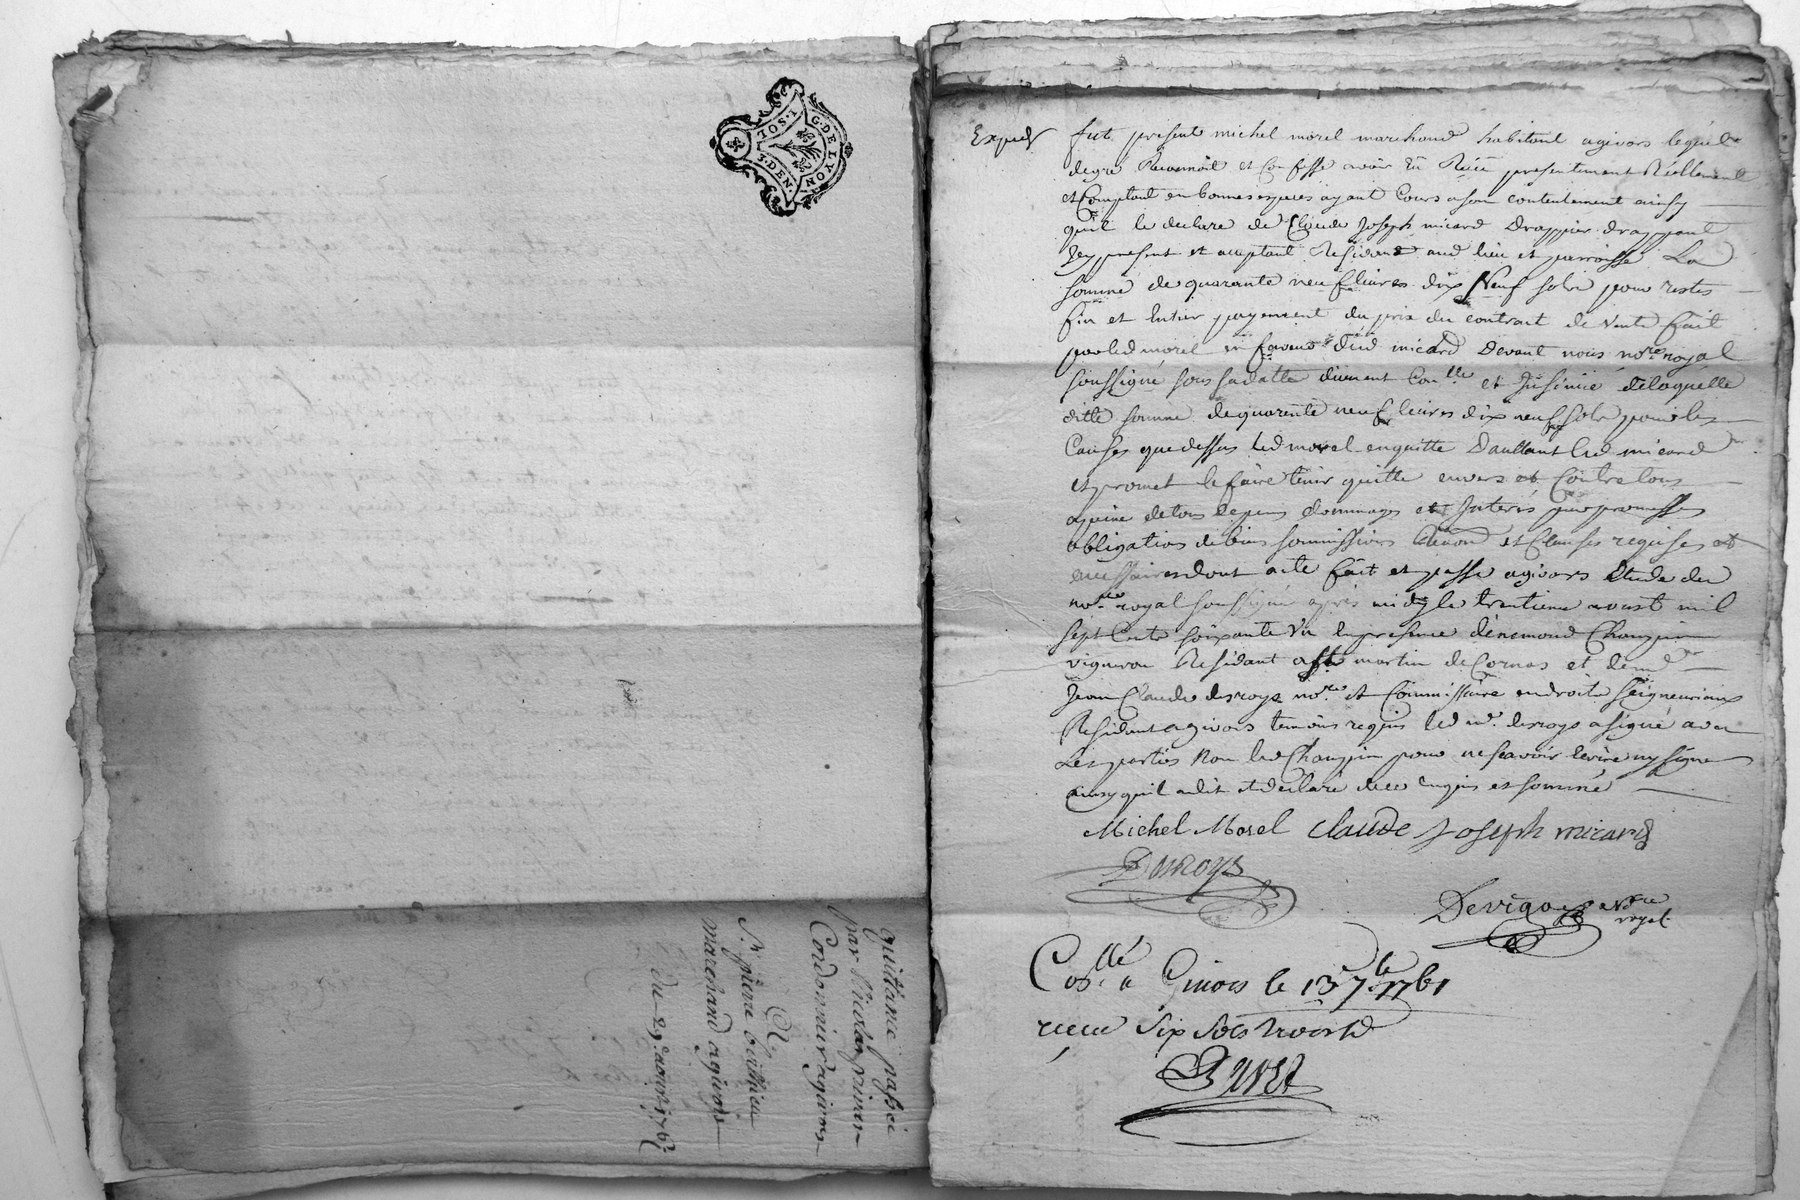 G. DE LYON
IOS. 1
3. DEN.
quittance passée
par Nicolas
Cordonnier agivors
A
Sr. pierre
marchand agivors
du 29e. aoust 1761
Exped
fut present michel morel marchand habitant agivors lequel
degré Reconnoit et Confesse avoir Eu Reçu presentement Réellement
et Comptant en bonnes especes ayant Cours a son contentement ainsy
quil le declare de Claude Joseph micard Drappier drappant
Icy present et aceptant Residant aud lieu et parroisse La
somme de quarante neuf livres dix Neuf sols pour restes
fin et Entier payement du prix du contract de vente fait
par led morel en faveur dud micard Devant nous nore. royal
soussigné sous sa datte düement Conllé et Insinué delaquelle
ditte somme de quarante neuf livres dix neuf sols pour les
Causes que dessus led morel enquitte D'aultant led micard
et promet le faire tenir quitte envers et Contre tous
apeine de tous depens dommages et Interés par promesses
obligation de biens soumissions et Clauses requises et
necessaires dont acte fait et passé agivors Etude du
nore. royal soussigné apres midy le trentieme aoust mil
sept Cents soixante Un En presence d'ènemond Champin
vigneron Residant a St martin de Cornas et de me
Jean Claude desroys nore. et Commissaire en droits seigneuriaux
Residant agivors temoins requis led me. desroys a signé avec
Les parties Non led Champin pour ne scavoir Ecrire ny signer
ainsy quil a dit et declaré de ce Enquis et sommé
Michel Morel Claude Joseph micard
Desroys
Devigo nore
royal
Conllé a Givors le 13 7bre 1761
recu six sols